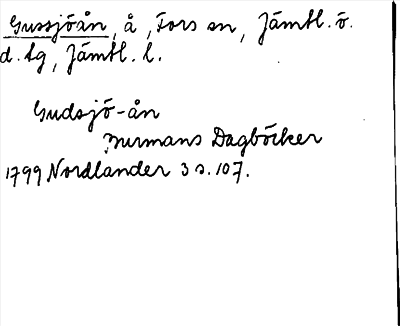 Gussjöån, å, Fors sn, Jämtl. ö.
d. tg, Jämtl. l.
Gudsjö-ån
Burmans Dagböcker
1799 Nordlander 3 s. 107.